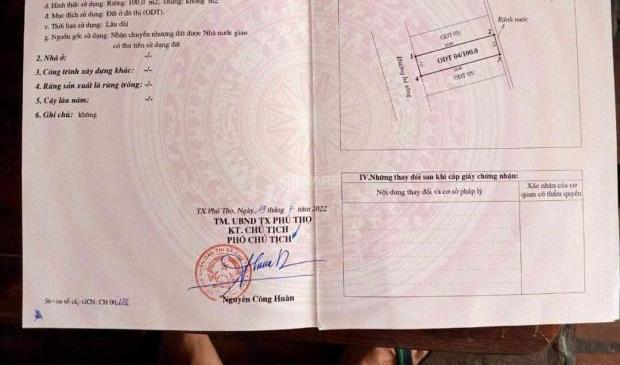 d. Hình thức sử dụng: Riêng: 100,0 m2; chung: không m2
đ. Mục đích sử dụng: Đất ở đô thị (ODT).
e. Thời hạn sử dụng: Lâu dài
g. Nguồn gốc sử dụng: Nhận chuyển nhượng đất được Nhà nước giao
có thu tiền sử dụng đất
2. Nhà ở: -/-
3. Công trình xây dựng khác: -/-
4. Rừng sản xuất là rừng trồng: -/-
5. Cây lâu năm: -/-
6. Ghi chú: không
TX Phú Thọ, Ngày 19 tháng 7 năm 2022
TM. UBND TX PHÚ THỌ
KT. CHỦ TỊCH
PHÓ CHỦ TỊCH
Nguyễn Công Huân
Số vào sổ cấp GCN: CH 00
Rãnh nước
ODT 03/
1
2
ODT 04/100.0
4
3
ODT 05/
Đường bê tông
IV.Những thay đổi sau khi cấp giấy chứng nhận:
Nội dung thay đổi và cơ sở pháp lý
Xác nhận của cơ
quan có thẩm quyền